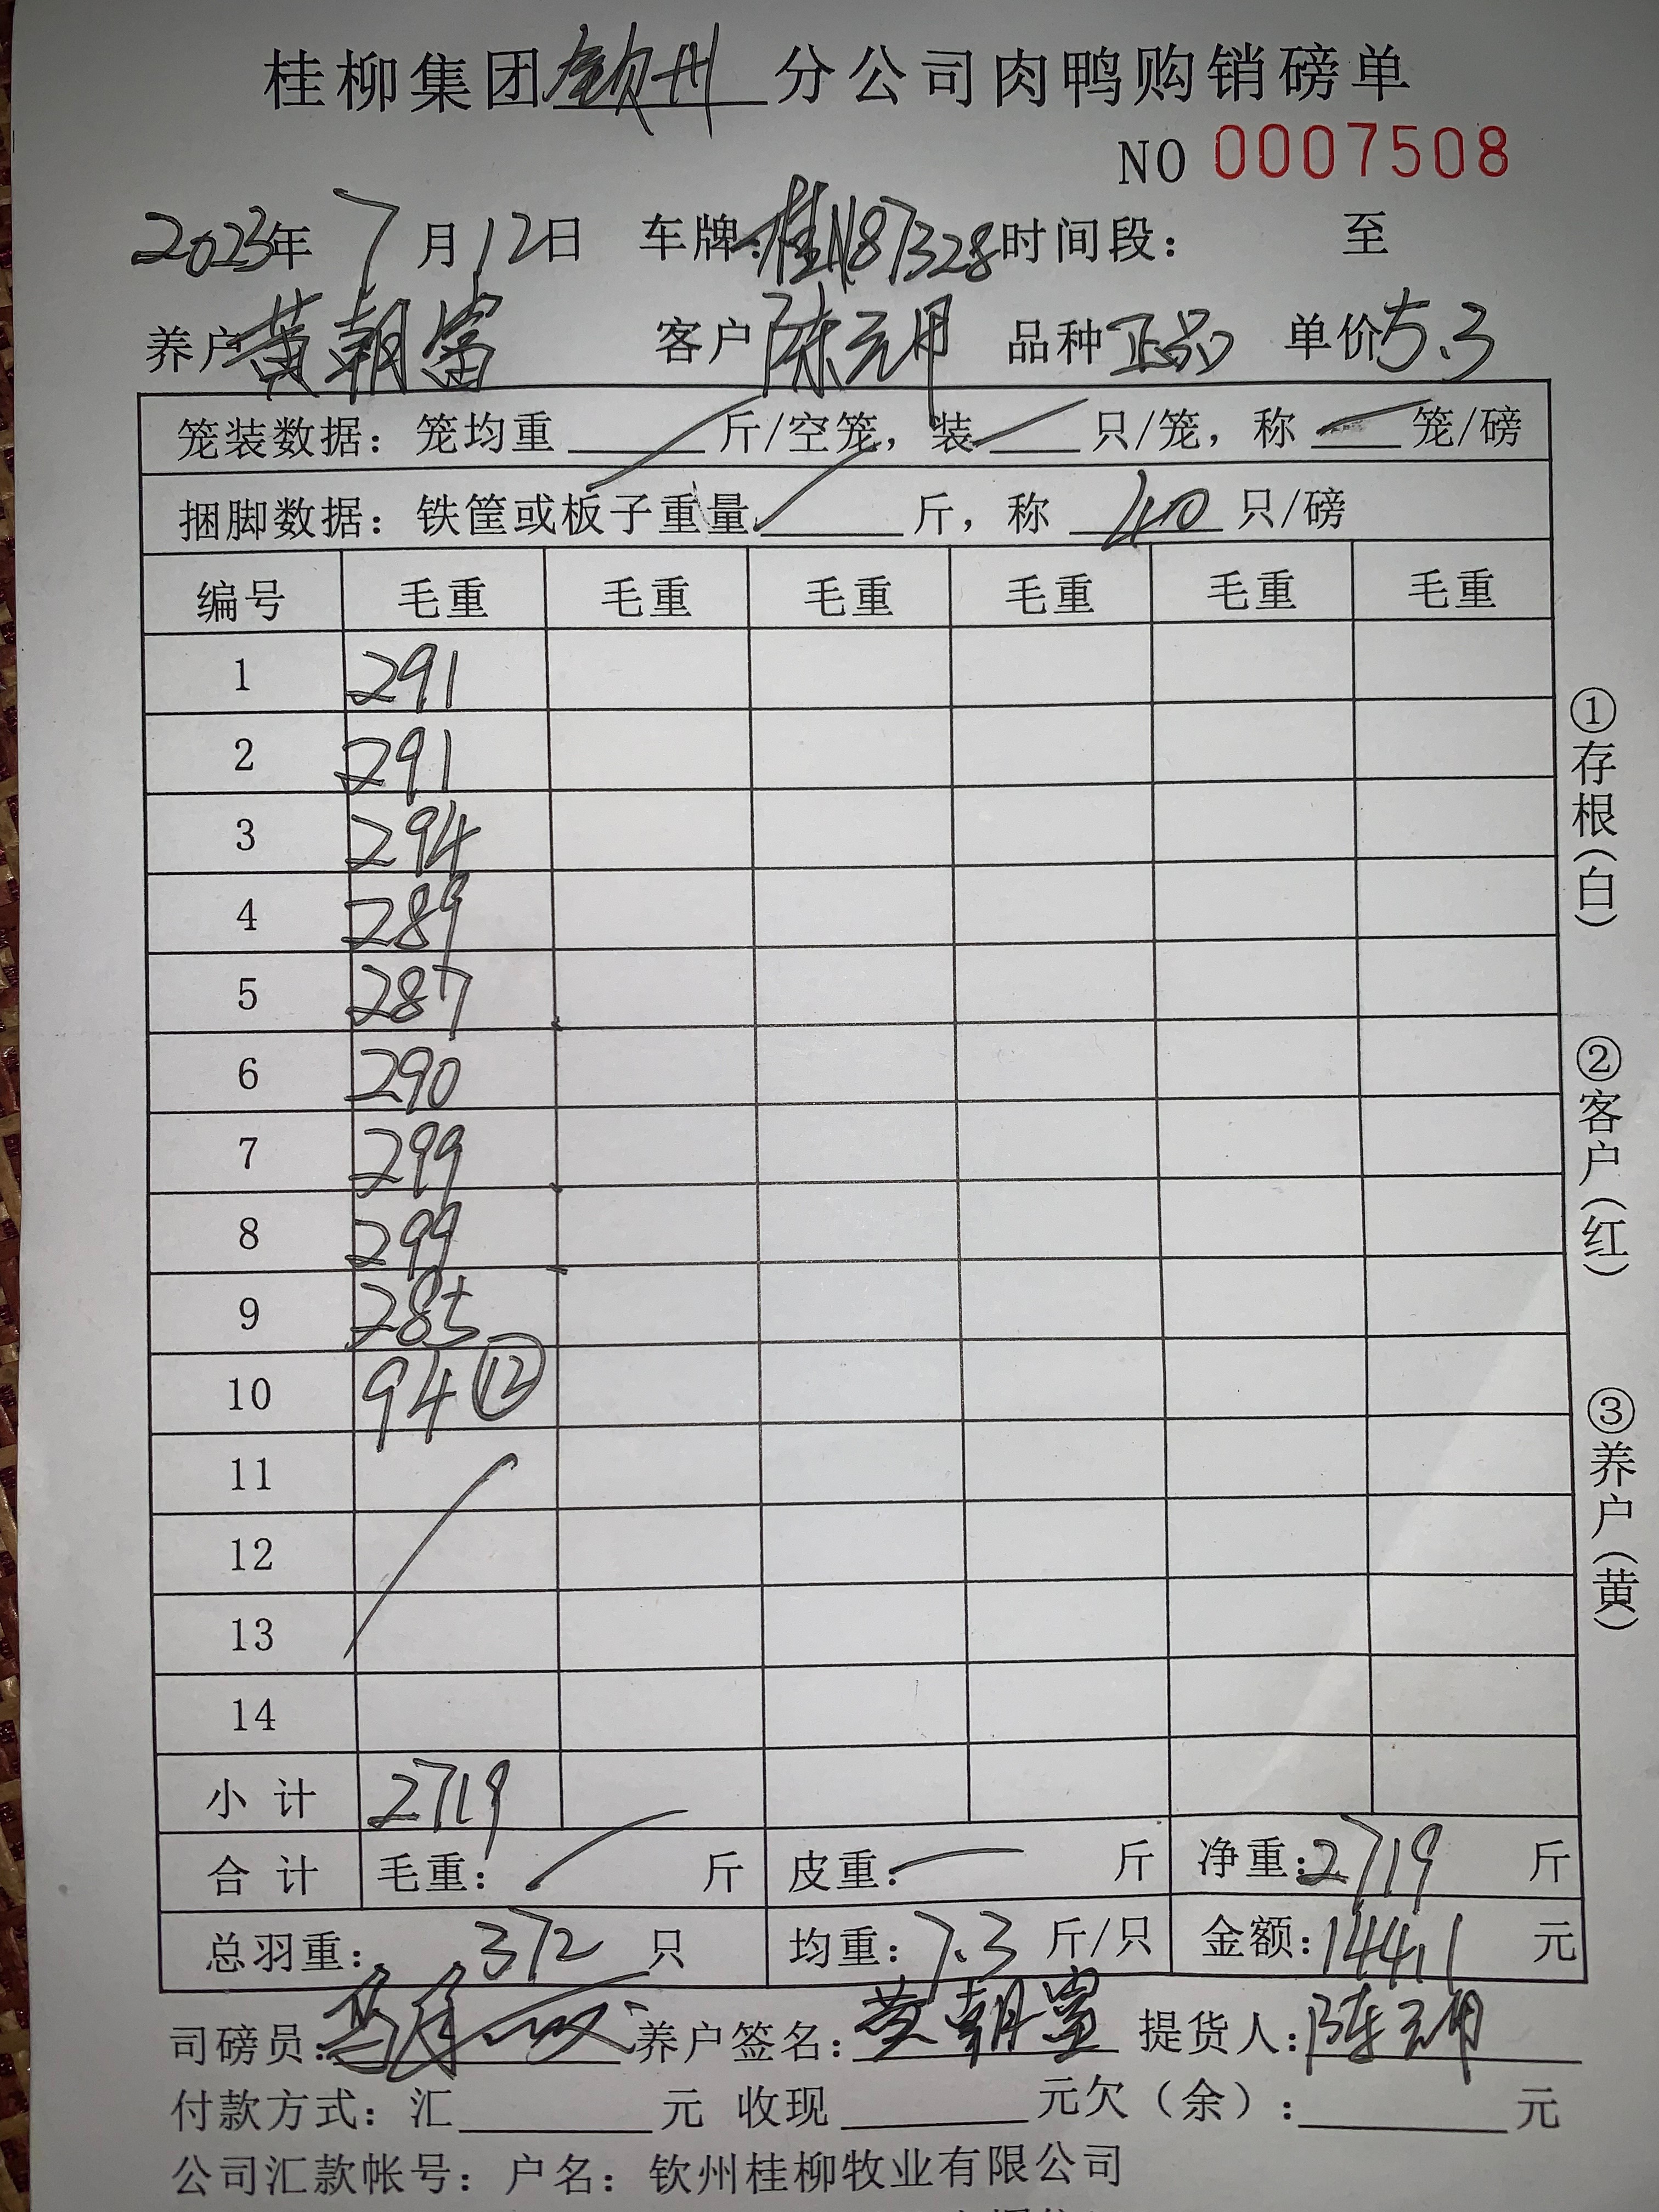 桂柳集团钦州分公司肉鸭购销磅单
NO 0007508
2023年 7月12日 车牌:桂N87328时间段: 至
养户黄朝富 客户陈元明 品种正品 单价5.3
笼装数据: 笼均重 斤/空笼, 装 只/笼, 称 笼/磅
捆脚数据: 铁筐或板子重量 斤, 称 40 只/磅
编号 毛重 毛重 毛重 毛重 毛重 毛重
1 291
2 291
3 294
4 289
5 287
6 290
7 299
8 299
9 285
10 94 ⑫
11
12
13
14
小 计 2719
合 计 毛重: 斤 皮重: 斤 净重:2719 斤
总羽重: 372 只 均重:7.3 斤/只 金额:14411 元
司磅员: 养户签名:黄朝富 提货人:陈元明
付款方式: 汇 元 收现 元欠(余): 元
公司汇款帐号: 户名: 钦州桂柳牧业有限公司
①存根(白)
②客户(红)
③养户(黄)